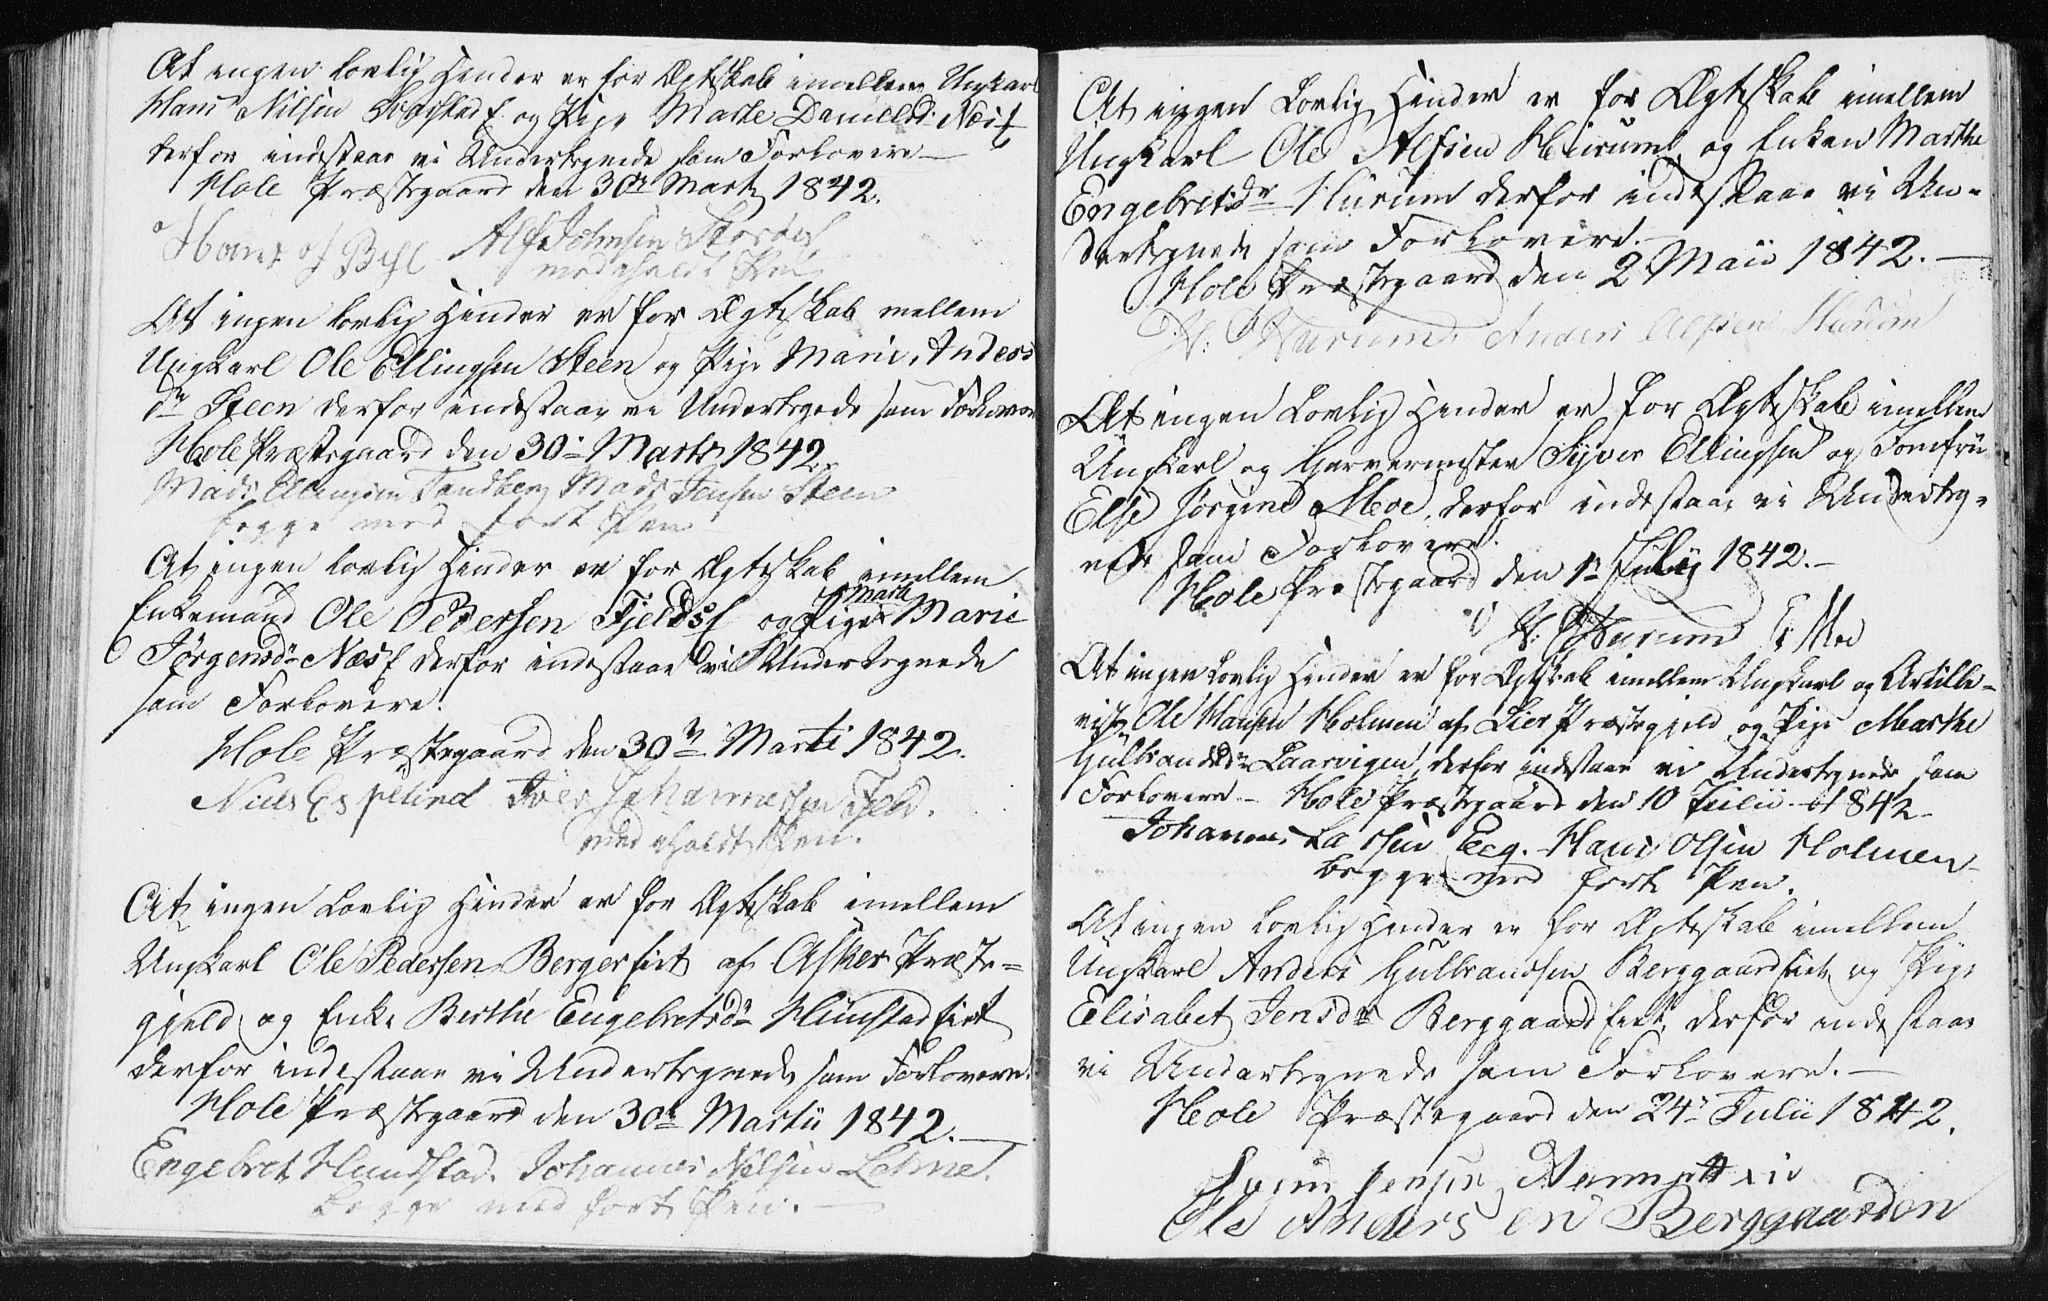 At ingen lovlig Hinder er for Ægteskab imellem Ungkarl
Hans Nilsen og Pige Marte Danielsd: Næss
derfor indestaar vi Undertegnede som Forlovere
Hole Præstegaard den 30te Marts 1842.
Alf Johnsen
med holdt Pen
At ingen lovlig Hinder er for Ægteskab mellem
Ungkarl Ole Ellingsen Steen og Pige Marie Anders
dr Steen derfor indestaar vi Undertegnede som Forlovere
Hole Præstegaard den 30te Marts 1842.
Mads Ellingsen Tandberg Mads Jensen Steen
begge med ført Pen
At ingen lovlig Hinder er for Ægteskab imellem
Marte
Enkemand Ole Pedersen Fjelds og Pige Marie
Jørgensdr Næss derfor indestaar vi Undertegnede
som Forlovere.
Hole Præstegaard den 30te Marti 1842.
Niels Espelind Iver Johannessen Field.
med holdt Pen.
At ingen Lovlig Hinder er for Ægteskab imellem
Ungkarl Ole Pedersen Bergerseiet af Asker Præste-
gjeld og Enke Berthe Engebretsdr Hundstadeiet
derfor indestaar vi Undertegnede som Forlovere.
Hole Præstegaard den 30te Martii 1842.
Engebret Hundstad. Johannes Nilsen Lehne.
begge med ført Pen.
At ingen Lovlig Hinder er for Ægteskab imellem
Ungkarl Ole Alfsen Hurum og Enken Marthe
Engebretsdr Hurum derfor indestaar vi Un-
dertegnede som Forlovere.
Hole Præstegaard den 2 Maii 1842.
H: Hurum Anders Alfsen Hurum
At ingen Lovlig Hinder er for Ægteskab imellem
Ungkarl og Garvermester Syver Ellingsen og Jomfru
Else Jørgine Moe, derfor indestaar vi Underteg-
nede som Forlovere.
Hole Præstegaard den 1te July 1842.
H: Hurum E Moe
At ingen Lovlig Hinder er for Ægteskab imellem Ungkarl og Artille-
rist Ole Hansen Holmen af Lier Præstegjeld og Pige Marthe
Gulbrandsdr Laarvigen, derfor indestaar vi Undertegnede som
Forlovere. Hole Præstegaard den 10 Julii 1842
Johannes Larsen Hans Olsen Holmen
begge med ført Pen.
At ingen lovlig Hinder er for Ægteskab imellem
Ungkarl Anders Gulbrandsen Berggaardseiet og Pige
Elisabet Jensdr Berggaardseiet, derfor indestaar
vi Undertegnede som Forlovere.
Hole Præstegaard den 24de Julii 1842.
Jensen
Ole Andersen Berggaarden